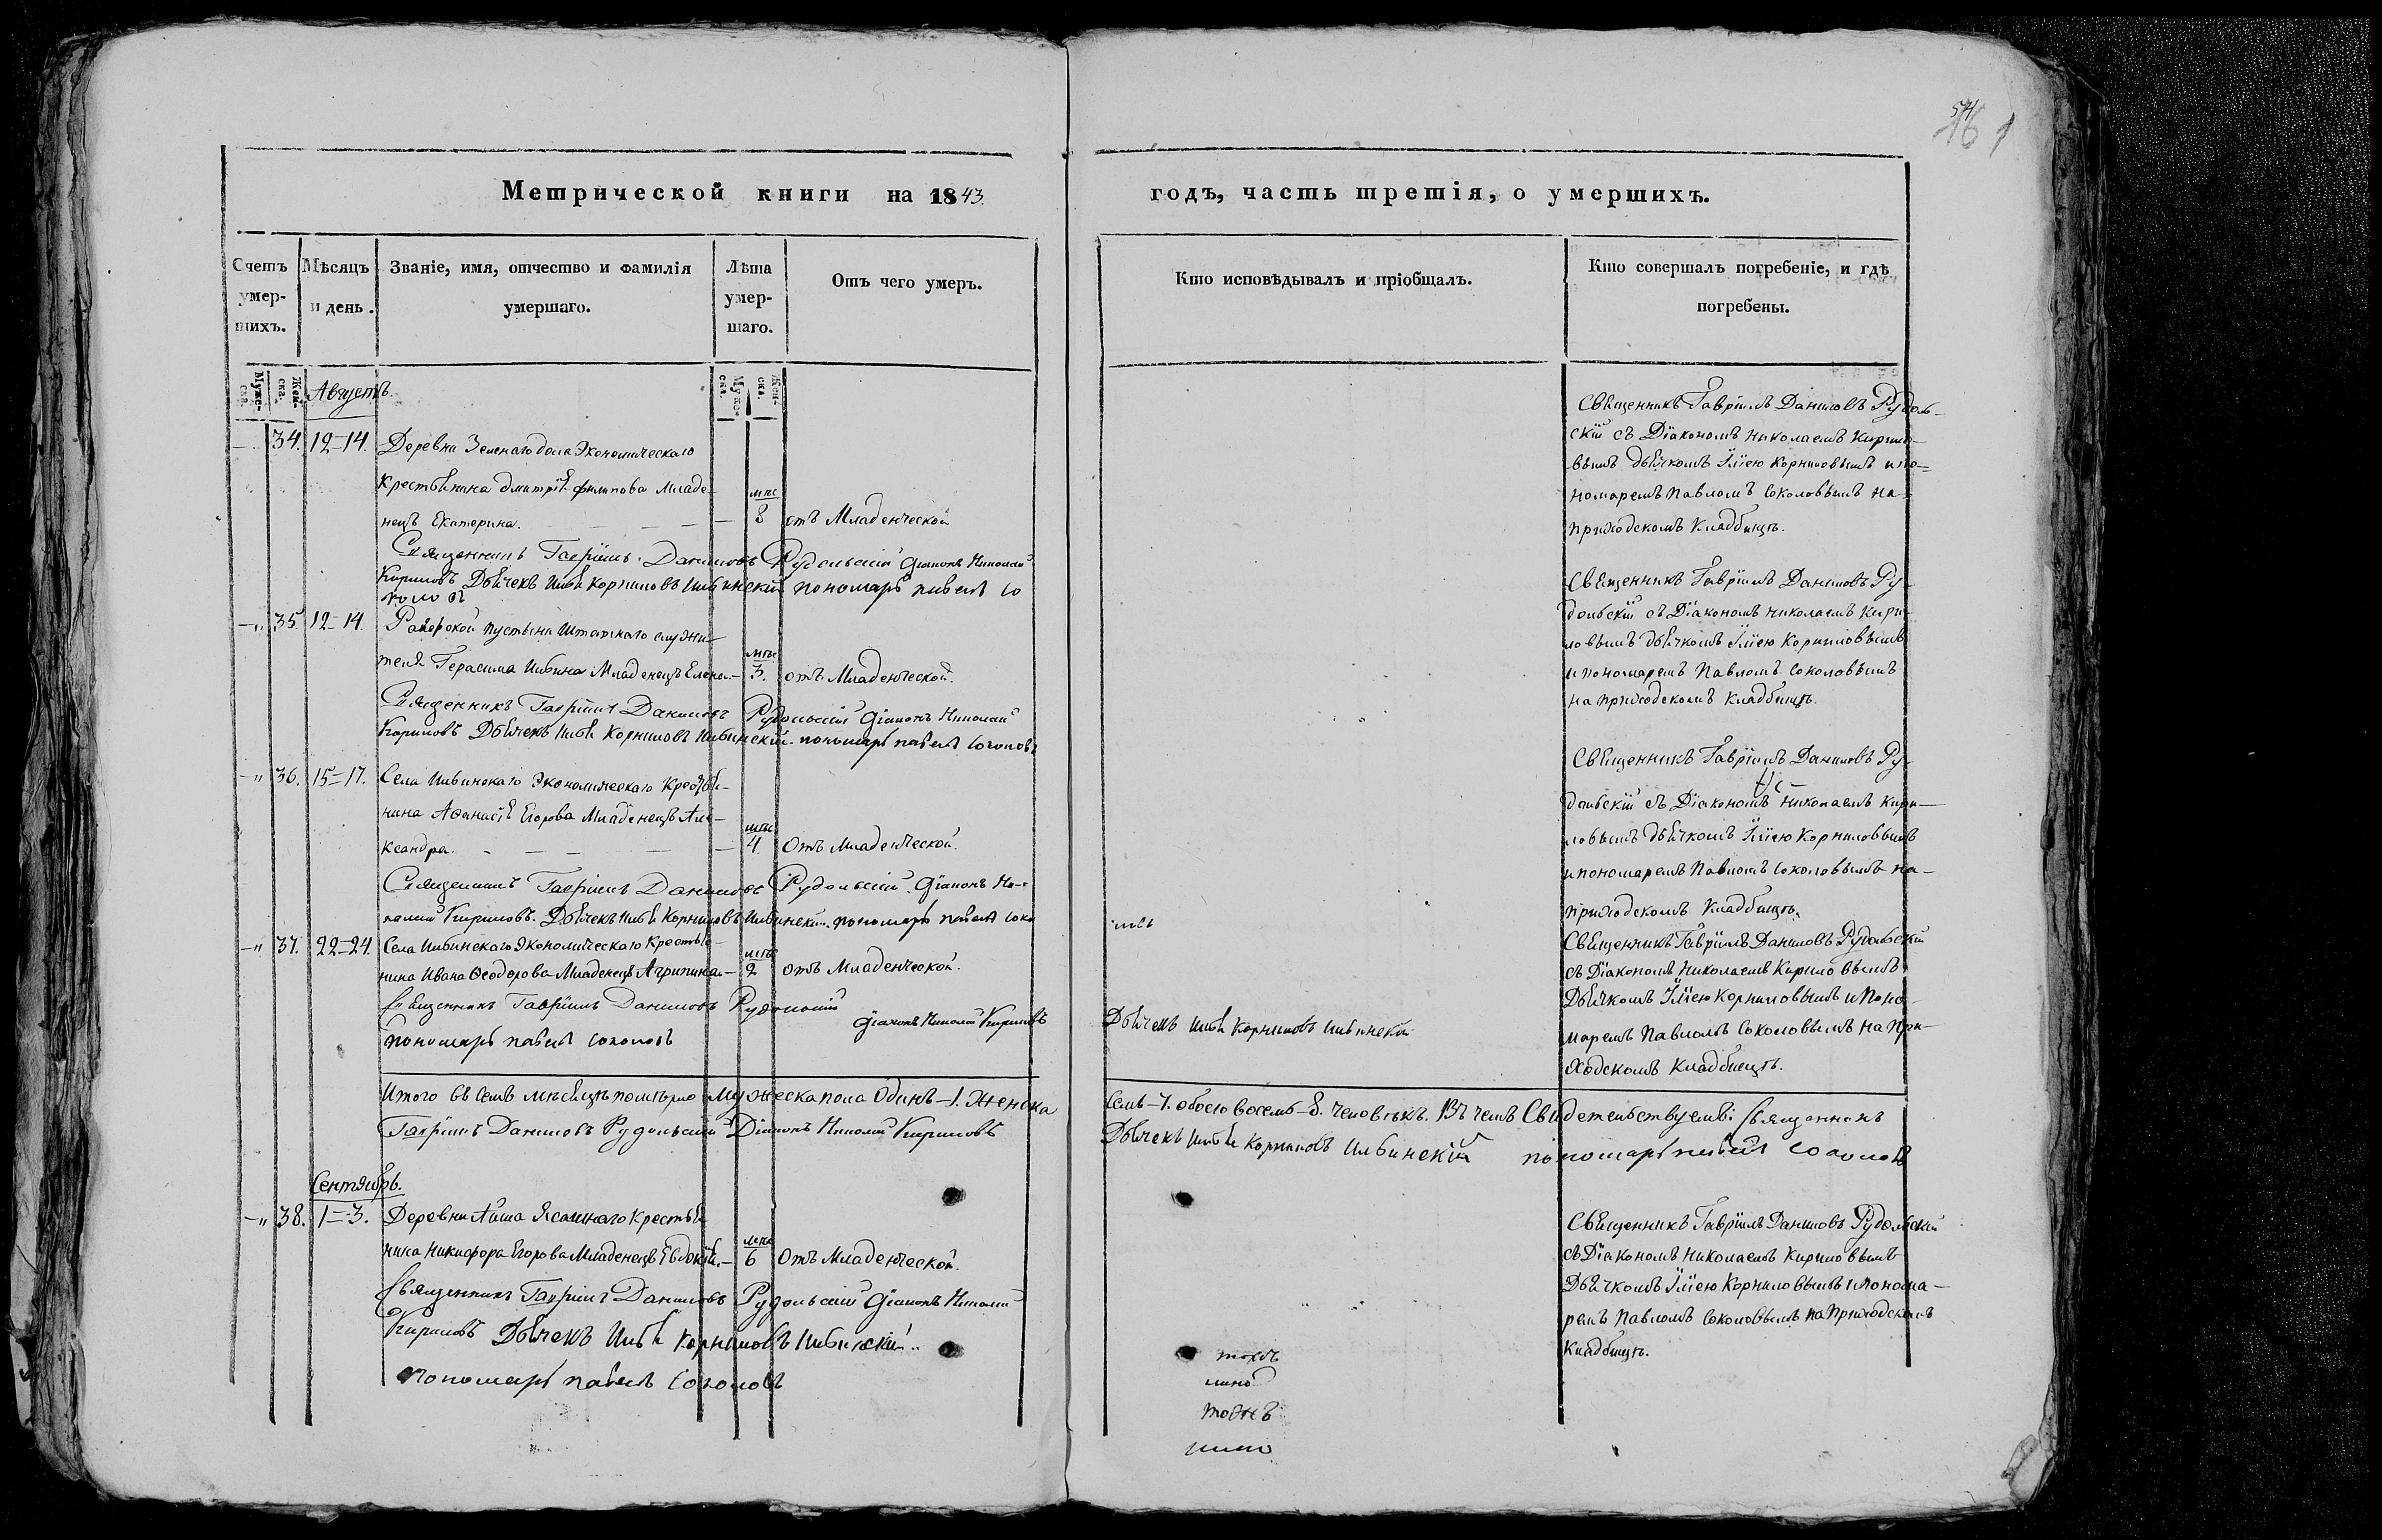 54
161
Метрической книги на 1843. годъ, часть третія, о умершихъ.
Счетъ умер-шихъ.
Мѣсяцъ и день.
Званіе, имя, отчество и фамилія умершаго.
Лѣта умер-шаго.
Отъ чего умеръ.
Кто исповѣдывалъ и пріобщалъ.
Кто совершалъ погребеніе, и гдѣ погребены.
Муже-ска.
Жен-ска.
Августъ.
Муже-ска.
Жен-ска.
34. 12=14. Деревни Зеленаго дола Экономическаго
крестьянина Дмитрія Филипова Младе-
нецъ Екатерина. — мѣс 8 отъ Младенческой
Священникъ Гавріилъ Даниловъ Рудольскій
скій съ Діакономъ Николаемъ Кирило-
вымъ дьячкомъ Иліею Корниловымъ и по-
номаремъ Павломъ Соколовымъ на
приходскомъ Кладбищѣ.
Священникъ Гавріилъ Даниловъ Рудольскій Діаконъ Николай
Кириловъ Дьячекъ Илья Корниловъ Ильинскій пономарь павелъ со
коловъ
— „ 35. 12=14. Раифской пустыни Штатнаго служи-
теля Герасима Ильина Младенецъ Елена. — мѣс 3. отъ Младенческой.
Священникъ Гавріилъ Даниловъ Ру-
дольскій съ Діакономъ Николаемъ Кири-
ловымъ дьячкомъ Иліею Корниловымъ
и пономаремъ Павломъ Соколовымъ
на приходскомъ Кладбищѣ.
Священникъ Гавріилъ Даниловъ Рудольскій Діаконъ Николай
Кириловъ Дьячекъ Илья Корниловъ Ильинскій. пономарь павелъ соколовъ
— „ 36. 15=17. Села Ильинскаго Экономическаго Крестья-
нина Афанасія Егорова Младенецъ Але-
ксандра. — мѣс 4. Отъ Младенческой.
Священникъ Гавріилъ Даниловъ Ру-
дольскій съ Діакономъ Николаемъ Кири-
ловымъ дьячкомъ Иліею Корниловымъ
и пономаремъ Павломъ Соколовымъ на-
приходскомъ Кладбищѣ.
Священникъ Гавріилъ Даниловъ Рудольскій. Діаконъ Ни-
колай Кириловъ. Дьячекъ Илья Корниловъ Ильинскій. пономарь павелъ соко
ловъ
— „ 37. 22=24. Села Ильинскаго Экономическаго Крестья-
нина Ивана Ѳеодорова Младенецъ Агрипина. — мѣс 2 отъ Младенческой.
Священникъ Гавріилъ Даниловъ Рудольскій
съ Діакономъ Николаемъ Кириловымъ
Дьячкомъ Иліею Корниловымъ и Поно-
маремъ Павломъ Соколовымъ на При-
ходскомъ Кладбищѣ.
Священникъ Гавріилъ Даниловъ Рудольскій
Діаконъ Николай Кириловъ Дьячекъ Илья Корниловъ Ильинскій
пономарь павелъ соколовъ
Итого въ семъ мѣсяцѣ померло Мужеска пола Одинъ—1. Женска Семь—7. обоего восемь—8. человѣкъ. Въ чемъ Свидетельствуемъ: Священникъ
Гавріилъ Даниловъ Рудольскій Діаконъ Николай Кириловъ Дьячекъ Илья Корниловъ Ильинскій пономарь павелъ соколовъ
Сентябрь.
— „ 38. 1=3. Деревни Айша Ясашнаго крестья
нина Никифора Егорова Младенецъ Евдокія. — мѣс 6 Отъ Младенческой.
Священникъ Гавріилъ Даниловъ Рудольскій
съ Діакономъ Николаемъ Кириловымъ
Дьячкомъ Иліею Корниловымъ и Понома-
ремъ Павломъ Соколовымъ на Приходскомъ
Кладбищѣ.
Священникъ Гавріилъ Даниловъ Рудольскій Діаконъ Николай
Кириловъ Дьячекъ Илья Корниловъ Ильинскій.
пономарь павелъ соколовъ